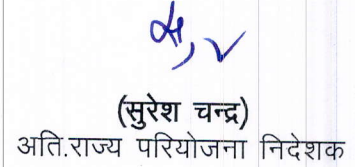 (सुरेश चन्द्र)
अति.राज्य परियोजना निदेशक